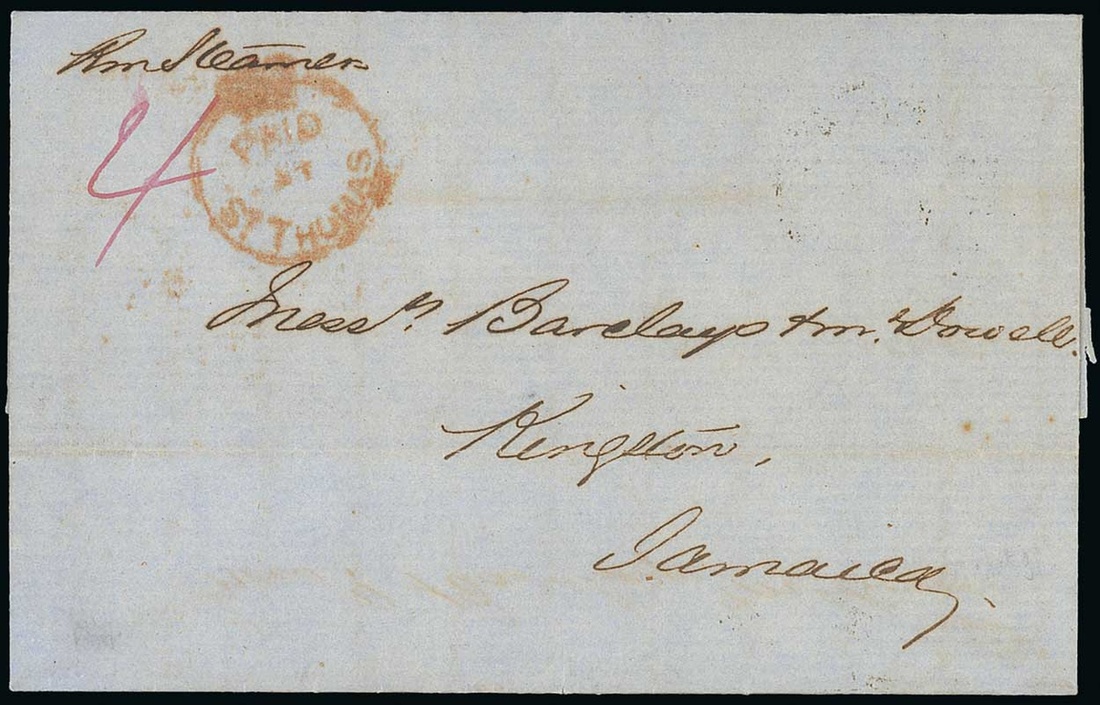 Rm Steamer
4
PAID
AT
ST THOMAS
Messrs. Barclays & Mc. Dowell.
Kingston,
Jamaica